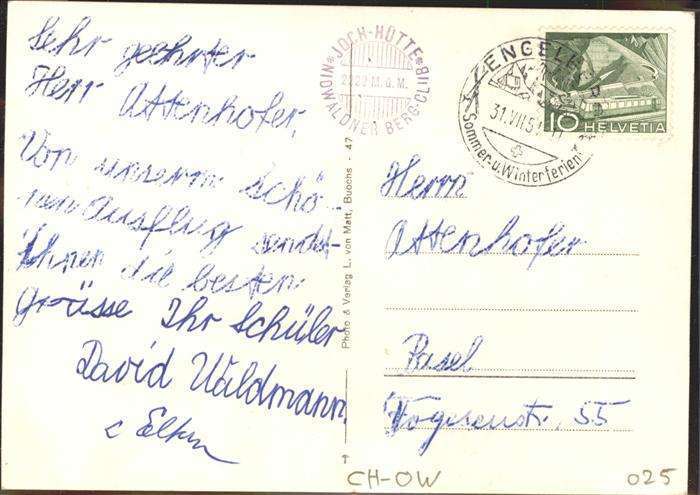 Sehr geehrter
Herr Attenhofer,
Von unserm Schö-
nen Ausflug sendet
Ihnen die besten
Grüsse Ihr Schüler
David Waldmann.
c Eltern
JOCH-HÜTTE
NIDWALDNER BERG-CLUB
Photo & Verlag L. von Matt, Buochs - 47
ENGELB
31.VII.5
Sommer-u.Winterferien
10 HELVETIA
Herrn
Attenhofer
Basel
Vogesenstr. 55
CH-OW
025